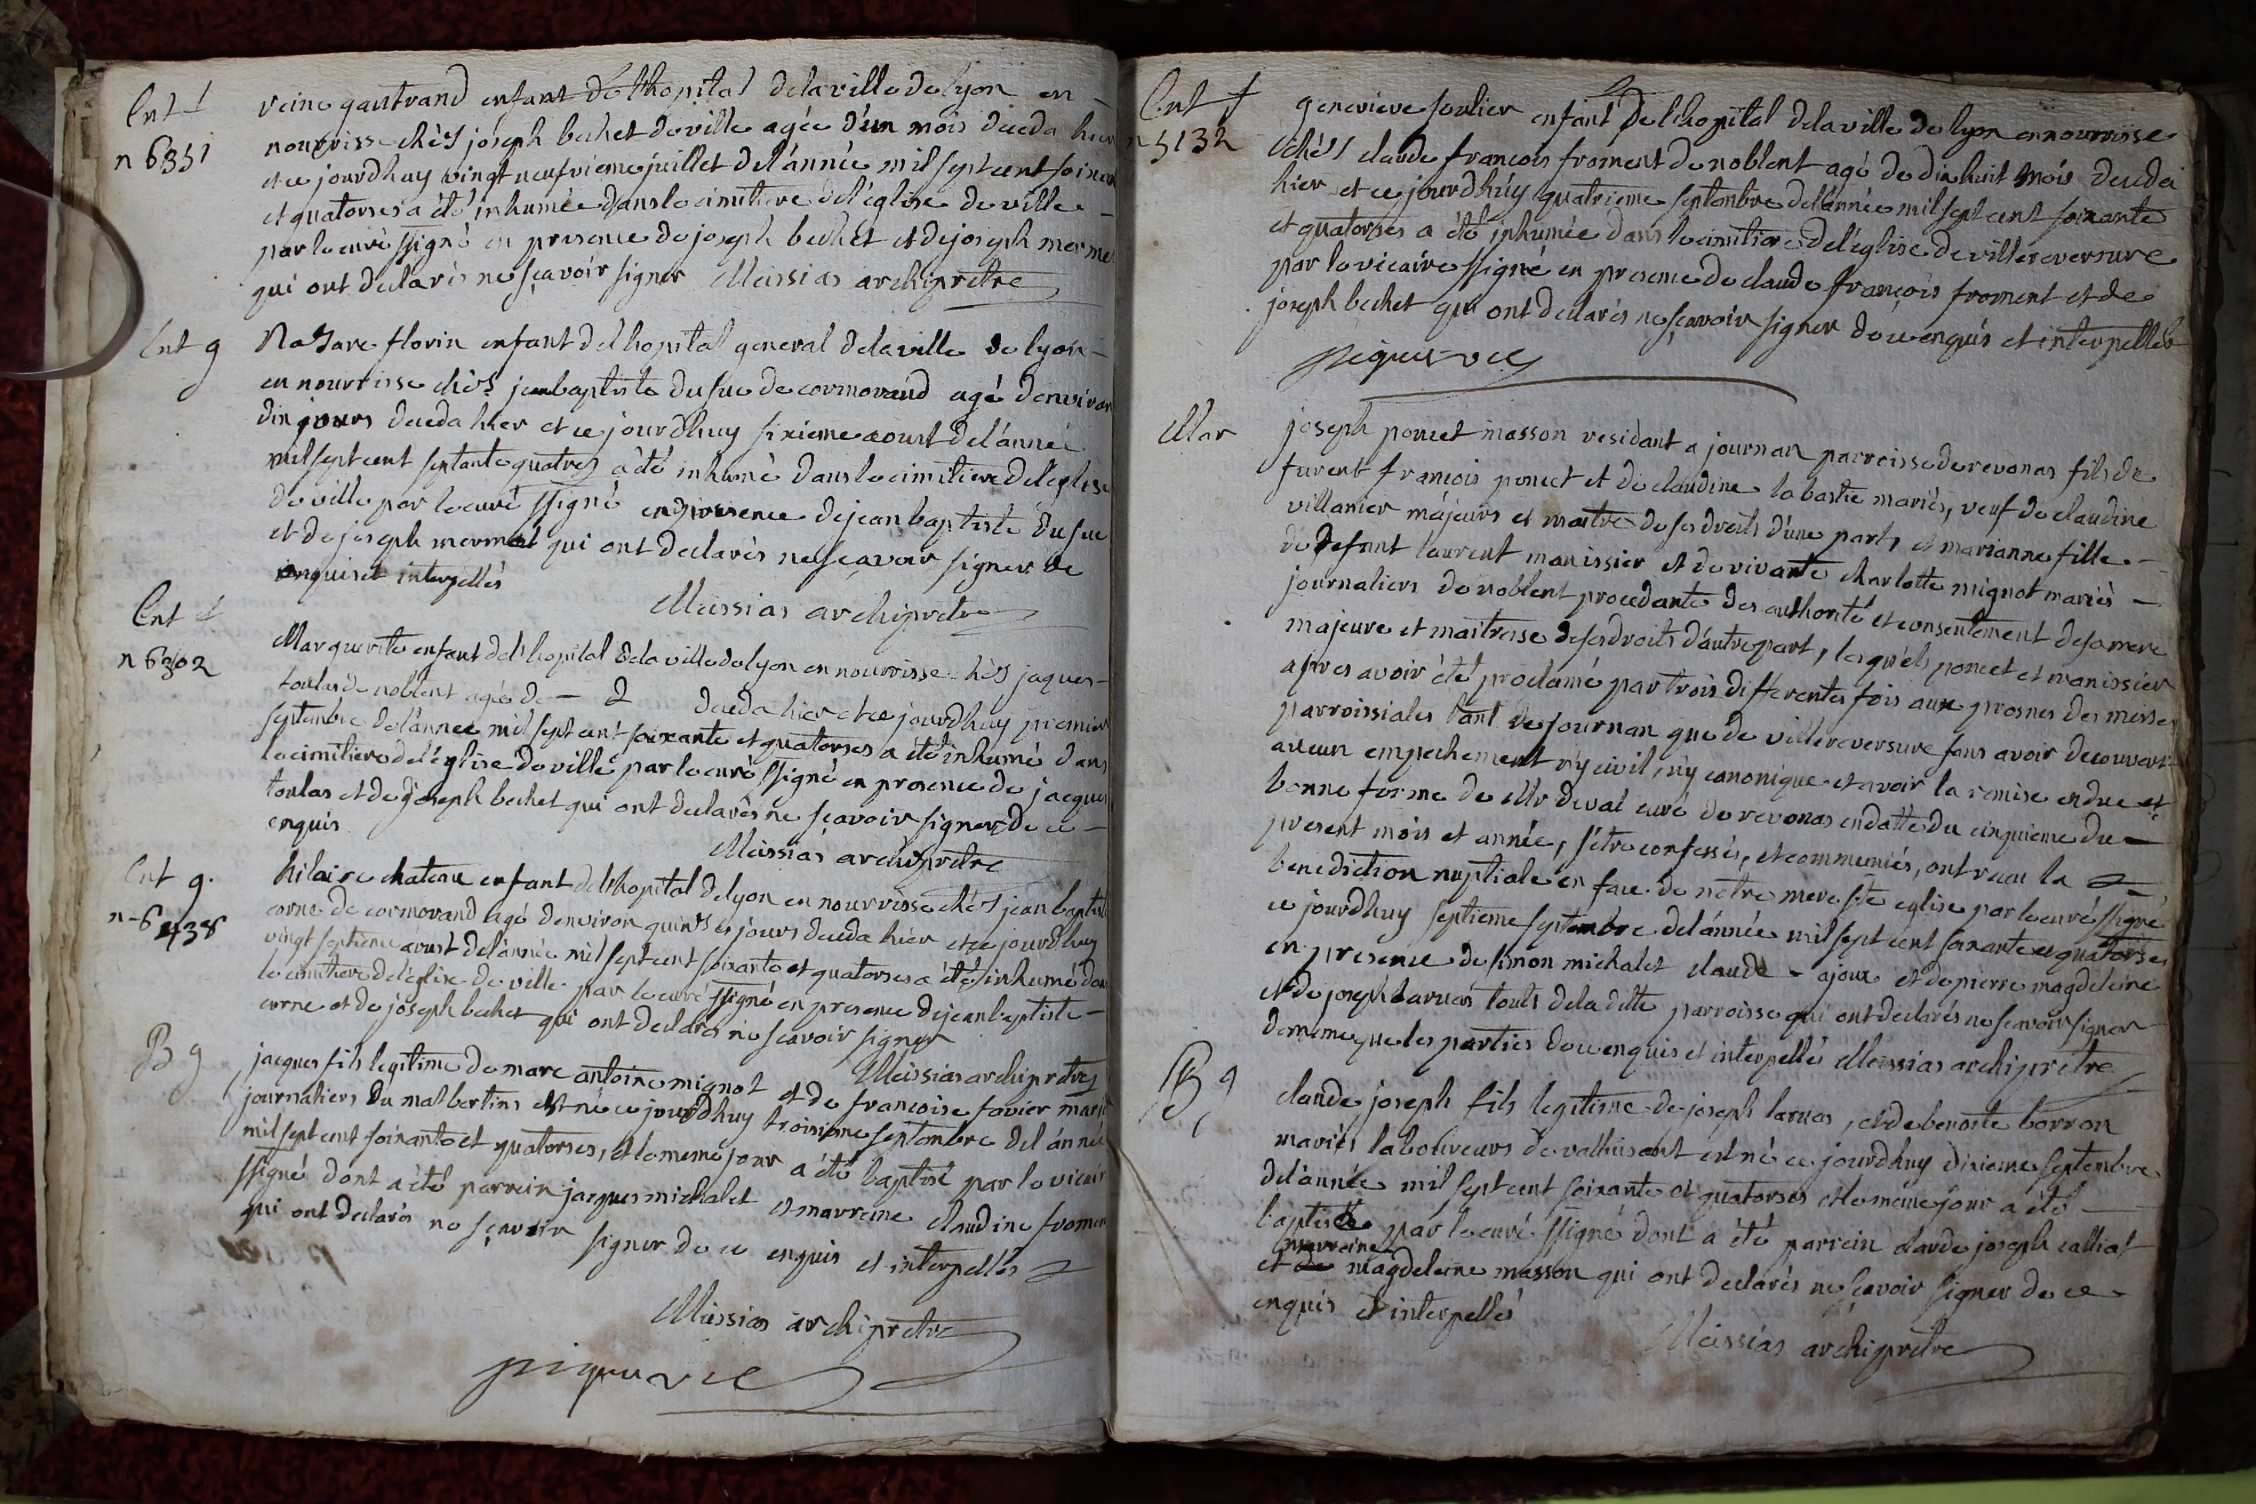 Ent f
n 6351
reine gautrand enfant de lhopital dela ville de lyon en
nourrisse chès joseph bechet deville agée d'un mois deceda hier
et ce jourdhuy vingt neufvieme juillet del'année mil sept cent soixan
et quatorses a été inhumée dans le cimitiere del'église de ville
par le curé ssigné en presence de joseph bechet et de joseph merme
qui ont declarés ne sçavoir signer Messias archiprétre
Ent g
Nasare florin enfant del hopital general dela ville de lyon
en nourrisse chès jean baptiste dufuc de cormorand agé denviron
dix jours deceda hier et ce jourdhuy sixieme aoust del'année
mil sept cent septante quatres à été inhumé dans le cimitiere del'eglise
de ville par le curé ssigné en presence de jean baptiste dufuc
et de joseph mermet qui ont declarés ne scavoir signer de
enquis et interpellés
Messias archiprétre
Ent f
n 6302
Marguerite enfant del'hopital dela ville de lyon en nourrisse chès jaques
toulas de noblent agée de deceda hier et ce jourdhuy premier
septembre del'annee mil sept cent soixante et quatorses a été inhumé dans
le cimitiere del'église de ville par le curé ssigné en presence de jacques
toulas et de joseph bechet qui ont declarés ne scavoir signer de ce
enquis
Messias archiprétre
Ent g.
n-6438
hilaire chatenu enfant del'hopital de lyon en nourrisse chès jean baptiste
corne de cormorand agé denviron quinses jours deceda hier et ce jourdhuy
vingt septieme aoust del'année mil sept cent soixante et quatorses a été inhumé dans
le cimitiere del'église de ville par le curé ssigné en presence de jean baptiste
corne et de joseph bechet qui ont declarés ne scavoir signer
Messias archiprétre
B g
jacques fils legitime de marc antoine mignot et de francoise favier mariés
journaliers du mas bertins est né ce jourdhuy troisieme septembre del'année
mil sept cent soixante et quatorses, et le meme jour a été baptisé par le vicair
ssigné dont a été parrein jacques michalet et marreine claudine fromen
qui ont declarés ne sçavoir signer de ce enquis et interpellés
Messias archiprétre
piqueret vic
Ent f
n 5132
genevieve soulier enfant de lhopital dela ville de lyon en nourrisse
chès claude francois froment de noblent agé de dix huit mois deceda
hier et ce jourdhuy quatrieme septembre del'année mil sept cent soixante
et quatorses a été inhumée dans le cimitiere del'église de villereversure
par le vicaire ssigné en presence de claude francois froment et de
joseph bechet qui ont declarés ne scavoir signer de ce enquis et interpellés
piqueret vic
Mar
joseph poncet masson residant a journan parroisse de revonas fils de
furent francois poncet et de claudine la bastie mariés, veuf de claudine
villanier majeurs et maitre de ses droits d'une part, et marianne fille
de defunt laurent manissier et de vivante charlotte mignot mariés
journaliers de noblent procedante des authorité et consentement de sa mere
majeure et maitresse de ses droits d'autre part, lesquels poncet et manissier
apres avoir été proclamé par trois differentes fois aux prosnes des messes
parroissiales tant de journan que de villereversure sans avoir decouvert
aucun empechement n'y civil, n'y canonique et avoir la remise en due et
bonne forme de Mr duval curé de revonas en datte du cinquieme du
present mois et année, s'étre confessés, et communiés, ont recu la
benediction nuptiale en face de notre mere ste eglise par le curé ssigné
ce jourdhuy septieme septembre del'année mil sept cent soixante et quatorses
en presence de simon michalet claude ajoux et de pierre magdeleine
et de joseph laruas touts de la ditte parroisse qui ont declarés ne scavoir signer
de meme que les parties de ce enquis et interpellé Messias archiprétre
B g
claude joseph fils legitime de joseph laruas, et de benoite borron
mariés laboureurs de valhuisant est né ce jourdhuy dixieme septembre
del'année mil sept cent soixante et quatorses et le meme jour a été
baptisé par le curé ssigné dont a été parrein claude joseph calliat
marreine
et de magdeleine masson qui ont declarés ne scavoir signer de ce
enquis et interpellé
Messias archiprétre